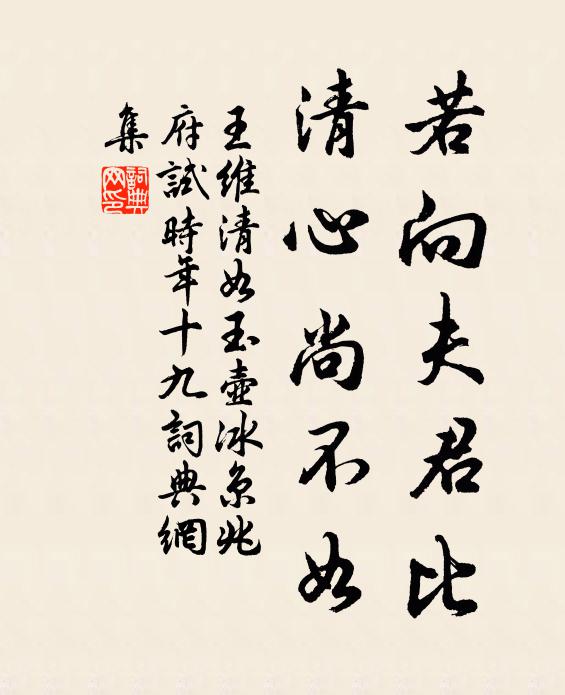 若向夫君比
清心尚不如
王維清如玉壺冰京兆
府試時年十九詞典網
集
詞典
网印